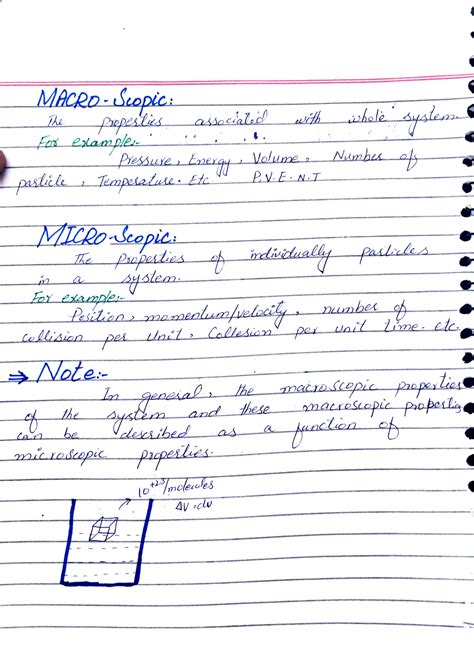 MACRO-Scopic:
The properties associated with whole system.
For example:-
Pressure, Energy, Volume, Number of
particle, Temperature. Etc P.V.E.N.T
MICRO-Scopic:
The properties of individually particles
in a system.
For example:-
Position, momentum/velocity, number of
collision per unit, Collesion per unit time. etc.
⇒ Note:-
In general, the macroscopic properties
of the system and these macroscopic properties
can be described as a function of
microscopic properties.
10⁺²³/molecules
ΔV=dv